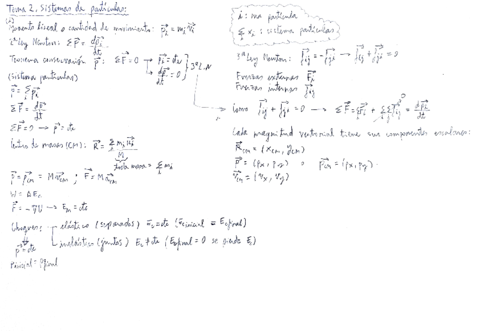 Tema 2. Sistemas de partículas
Momento lineal o cantidad de movimiento: p⃗ᵢ = mᵢ v⃗ᵢ
2ª ley Newton: ΣF⃗ = dp⃗ᵢ/dt
Teorema conservación p⃗: ΣF⃗ = 0 → p⃗ᵢ = cte → dp⃗ᵢ/dt = 0 } 3ª L.N
(Sistema partículas)
p⃗ = Σ p⃗ᵢ
ΣF⃗ = dp⃗/dt
ΣF⃗ = 0 → p⃗ = cte
Centro de masas (CM): R⃗ =
masa = Σ mᵢ
p⃗ = p⃗cm = M v⃗cm ; F⃗ = M a⃗cm
W = ΔEc
F⃗ = -∇U → Em = cte
Choques: elástico (separados) Ec = cte (Ecinicial = Ecfinal)
p⃗ = cte
inelástico (juntos) Ec ≠ cte (Ecfinal = 0 se pierde Ec)
pinicial = pfinal
i: una partícula
Σ xᵢ: sistema partículas
3ª ley Newton: f⃗ᵢⱼ = -f⃗ⱼᵢ → f⃗ᵢⱼ + f⃗ⱼᵢ = 0
Fuerzas externas F⃗ᵢ
Fuerzas internas f⃗ᵢⱼ
Como f⃗ᵢⱼ + f⃗ⱼᵢ = 0 → ΣF⃗ = ΣF⃗ᵢ + ΣΣ f⃗ᵢⱼ = dp⃗ᵢ/dt
Cada magnitud vectorial tiene sus componentes escalares:
R⃗cm = (xcm, ycm)
p⃗ = (px, py) = p⃗cm = (px, py)
v⃗cm = (vx, vy)